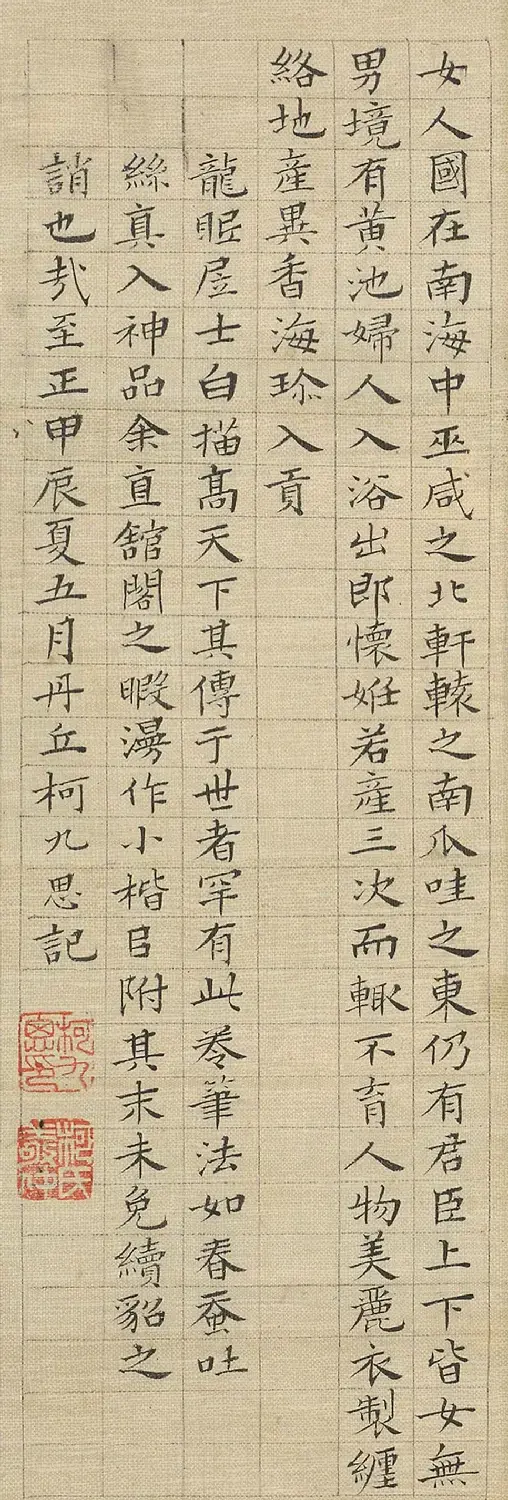 女人國在南海中巫咸之北軒轅之南爪哇之東仍有君臣上下皆女無
男境有黄池婦人入浴出即懷姙若產三次而輙不育人物美麗衣製纏
絡地產異香海珎入貢
龍眠居士白描髙天下其傳于世者罕有此卷筆法如春蚕吐
絲真入神品余直舘閣之暇漫作小楷㠯附其末未免續貂之
誚也㢤至正甲辰夏五月丹丘柯九思記